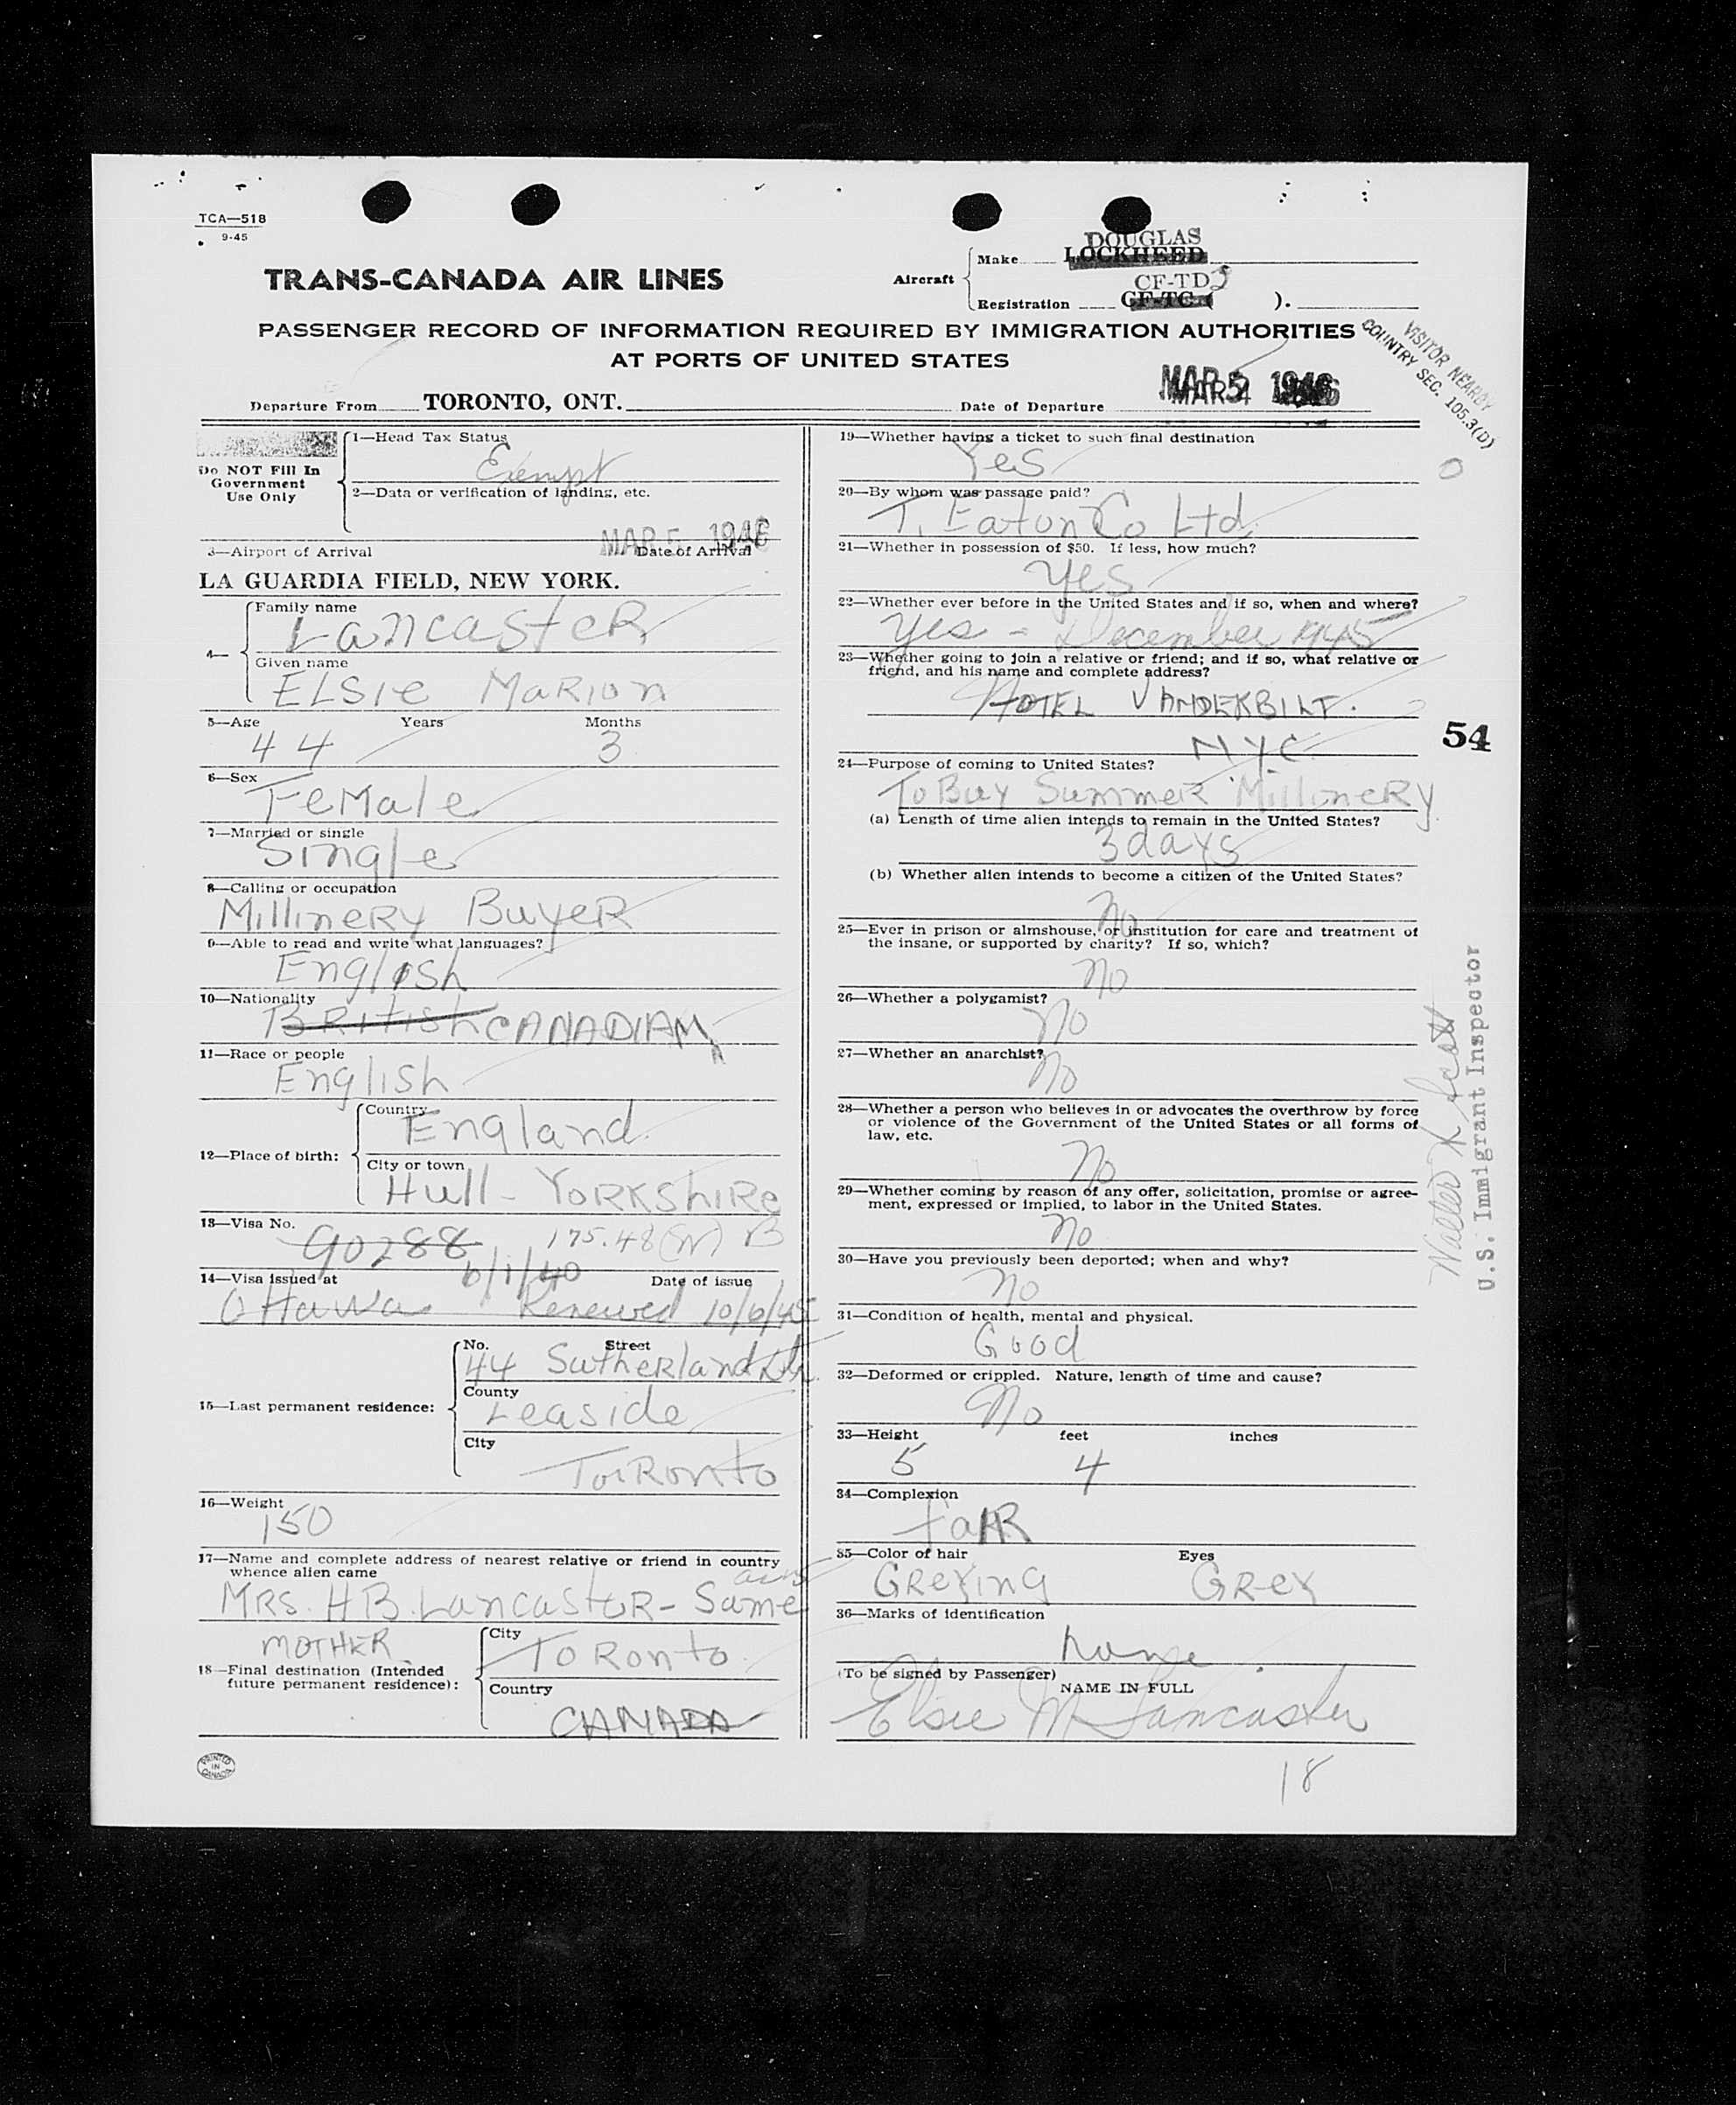 TCA—518
9-45
TRANS-CANADA AIR LINES
Aircraft
Make DOUGLAS
LOCKHEED
Registration CF-TDJ
CF-TC ( ).
PASSENGER RECORD OF INFORMATION REQUIRED BY IMMIGRATION AUTHORITIES
AT PORTS OF UNITED STATES
VISITOR NEARBY
COUNTRY SEC. 105.3(D)
Departure From TORONTO, ONT.
Date of Departure MAR 5 1946
Do NOT Fill In
Government
Use Only
1—Head Tax Status
Exempt
2—Data or verification of landing, etc.
3—Airport of Arrival
MAR 5 1946
Date of Arrival
LA GUARDIA FIELD, NEW YORK.
4—
Family name
Lancaster
Given name
ELSIE MARION
5—Age Years Months
44 3
6—Sex
Female
7—Married or single
Single
8—Calling or occupation
Millinery Buyer
9—Able to read and write what languages?
English
10—Nationality
British CANADIAN
11—Race or people
English
12—Place of birth:
Country
England
City or town
Hull - Yorkshire
13—Visa No.
90288 175.48 (W) B
14—Visa issued at 6/1/40 Date of issue
Ottawa Renewed 10/6/45
15—Last permanent residence:
No. Street
44 Sutherland Dr.
County
Leaside
City
Toronto
16—Weight
150
17—Name and complete address of nearest relative or friend in country
whence alien came
MRS. H B. Lancaster - Same
MOTHER
18—Final destination (Intended
future permanent residence):
City
Toronto
Country
CANADA
PRINTED
IN
CANADA
19—Whether having a ticket to such final destination
Yes
20—By whom was passage paid?
T. Eaton Co Ltd.
21—Whether in possession of $50. If less, how much?
Yes
22—Whether ever before in the United States and if so, when and where?
Yes - December 1945
23—Whether going to join a relative or friend; and if so, what relative or
friend, and his name and complete address?
HOTEL VANDERBILT.
NYC
54
24—Purpose of coming to United States?
To Buy Summer Millinery
(a) Length of time alien intends to remain in the United States?
3 days
(b) Whether alien intends to become a citizen of the United States?
No
25—Ever in prison or almshouse, or institution for care and treatment of
the insane, or supported by charity? If so, which?
No
26—Whether a polygamist?
No
27—Whether an anarchist?
No
28—Whether a person who believes in or advocates the overthrow by force
or violence of the Government of the United States or all forms of
law, etc.
No
29—Whether coming by reason of any offer, solicitation, promise or agree-
ment, expressed or implied, to labor in the United States.
No
30—Have you previously been deported; when and why?
No
31—Condition of health, mental and physical.
Good
32—Deformed or crippled. Nature, length of time and cause?
No
33—Height feet inches
5 4
34—Complexion
Fair
35—Color of hair Eyes
Greying Grey
36—Marks of identification
None
(To be signed by Passenger)
NAME IN FULL
Elsie M Lancaster
18
Walter K Scott
U.S. Immigrant Inspector